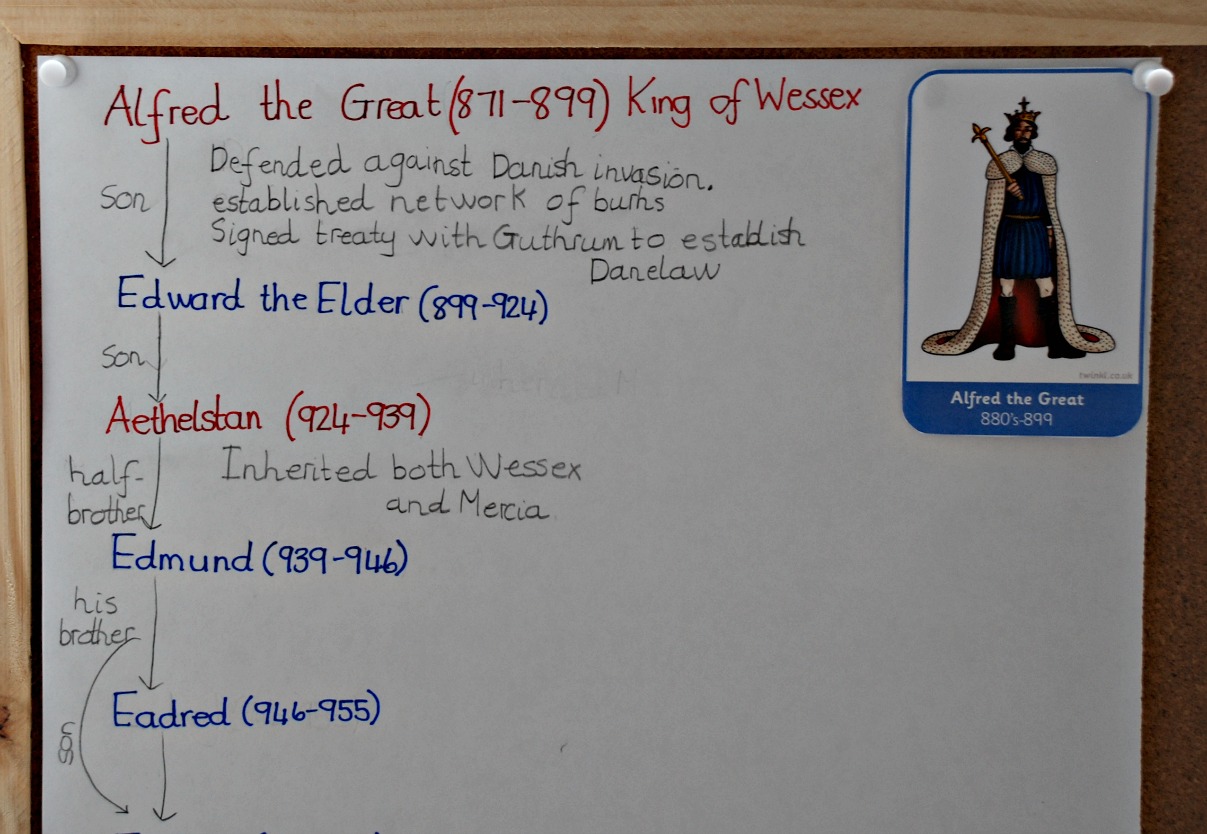 Alfred the Great (871-899) King of Wessex
Defended against Danish invasion.
Son
established network of burhs
Signed treaty with Guthrum to establish
Danelaw
Edward the Elder (899-924)
son
Aethelstan (924-939)
half-
brother
Inherited both Wessex
and Mercia
Edmund (939-946)
his
brother
Eadred (946-955)
son
twinkl.co.uk
Alfred the Great
880's-899